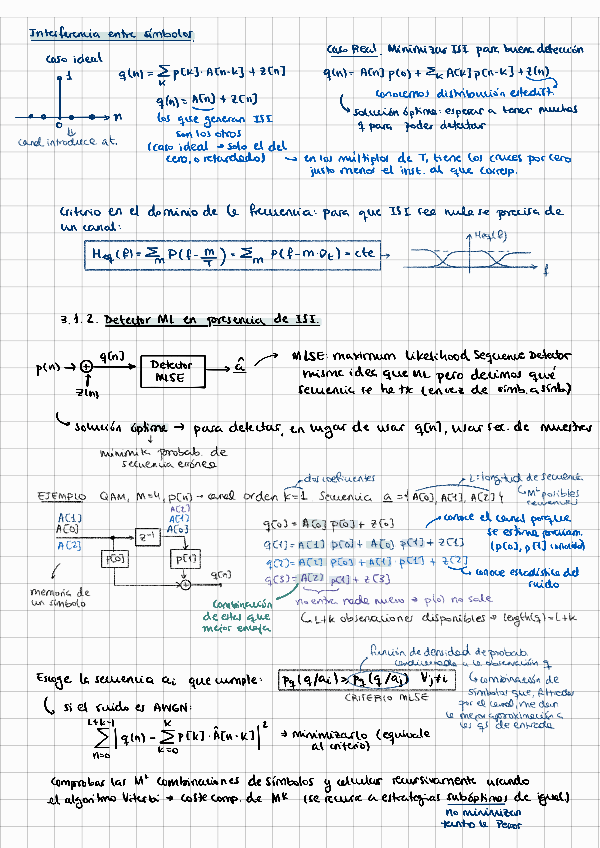 Interferencia entre símbolos
caso ideal
1
n
0
canal introduce at.
q(n) = Σ_k p[k]·A[n-k] + z[n]
q(n) = A[n] + z[n]
los que generan ISI
son los otros
(caso ideal → solo el del
cero, o retardado)
Caso Real. Minimizar ISI para buena detección
q(n) = A[n] p(0) + Σ_k A[k] p[n-k] + z(n)
conocemos distribución estadíst.
solución óptima: esperar a tener muchas
q para poder detectar
→ en los múltiplos de T, tiene los cruces por cero
justo menos el inst. al que corresp.
Criterio en el dominio de la frecuencia: para que ISI sea nula se precisa de
un canal:
Heq(f) = Σ_m P(f - m/T) = Σ_m P(f - m·Dt) = cte
Heq(f)
f
3.1.2. Detector ML en presencia de ISI.
p(n) → + q[n]
z[n]
Detector
MLSE
â
MLSE: maximum Likelihood Sequence Detector
misma idea que ML pero decimos qué
secuencia se ha tx (en vez de símb. a símb)
solución óptima → para detectar, en lugar de usar q[n], usar sec. de muestras
minimiza probab. de
secuencia errónea
dos coeficientes
L: longitud de secuencia
EJEMPLO QAM, M=4, p(n) → canal orden k=1 Secuencia a = {A[0], A[1], A[2]}
M^L posibles
secuencias
A[1]
A[0]
A[2]
A[2]
A[1]
A[0]
z⁻¹
p[0]
p[1]
+
q[n]
memoria de
un símbolo
q[0] = A[0] p[0] + z[0]
q[1] = A[1] p[0] + A[0] p[1] + z[1]
q[2] = A[2] p[0] + A[1] p[1] + z[2]
q[3] = A[2] p[1] + z[3]
conoce el canal porque
se estima previam.
(p[0], p[1] conocidos)
conoce estadística del
ruido
Combinación
de estas que
mejor encaja
no entra nada nuevo → p(0) no sale
L+k observaciones disponibles → length(q) = L+k
función de densidad de probab.
condicionada a la observación q
Escoge la secuencia ai que cumple: Pq(q/ai) > Pq(q/aj) ∀j≠i
CRITERIO MLSE
combinación de
símbolos que, filtrados
por el canal, me dan
la mejor aproximación a
las qs de entrada
si el ruido es AWGN:
Σ_{n=0}^{L+k-1} | q(n) - Σ_{k=0}^{K} p[k]·Â[n-k] |² → minimizarlo (equivale
al criterio)
Comprobar las M^L combinaciones de símbolos y calcular recursivamente usando
el algoritmo Viterbi → coste comp. de M^k (se recurre a estrategias subóptimas de igual)
no minimizan
tanto la Perror